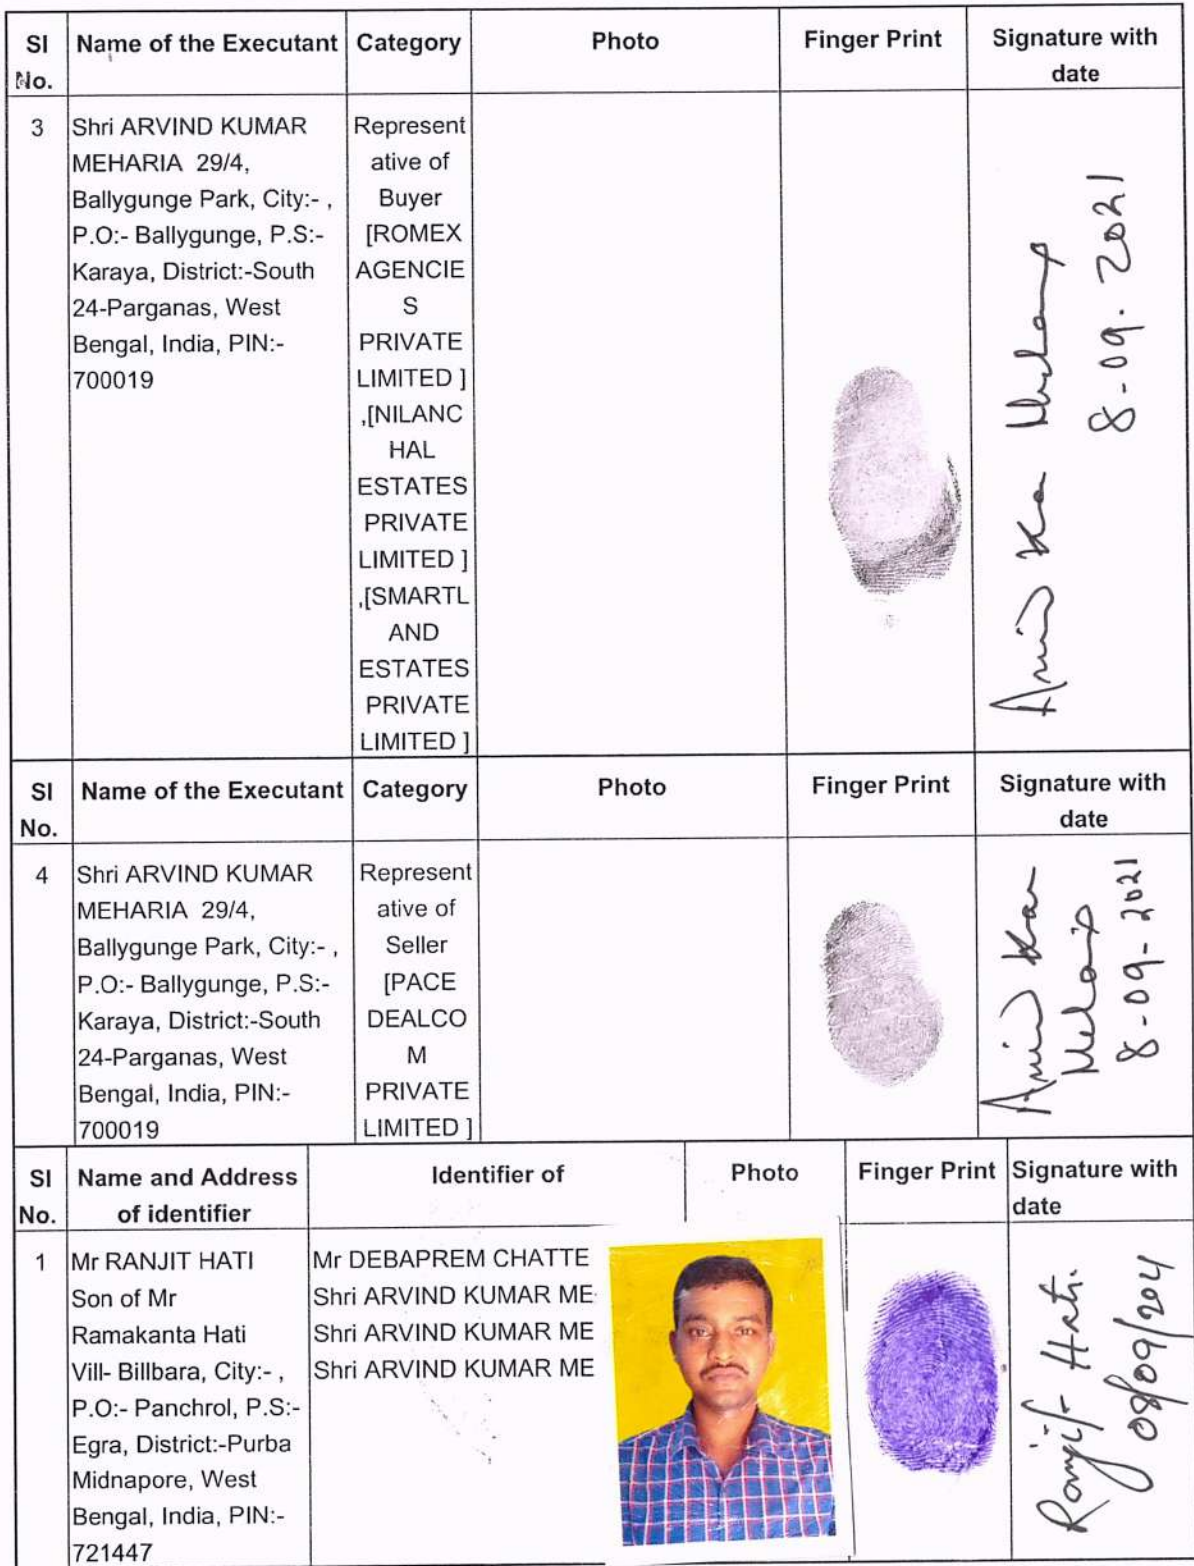 Sl No. Name of the Executant Category Photo Finger Print Signature with date
3
Shri ARVIND KUMAR
MEHARIA 29/4,
Ballygunge Park, City:- ,
P.O:- Ballygunge, P.S:-
Karaya, District:-South
24-Parganas, West
Bengal, India, PIN:-
700019
Represent
ative of
Buyer
[ROMEX
AGENCIE
S
PRIVATE
LIMITED ]
,[NILANC
HAL
ESTATES
PRIVATE
LIMITED ]
,[SMARTL
AND
ESTATES
PRIVATE
LIMITED ]
8-09-2021
Sl No. Name of the Executant Category Photo Finger Print Signature with date
4
Shri ARVIND KUMAR
MEHARIA 29/4,
Ballygunge Park, City:- ,
P.O:- Ballygunge, P.S:-
Karaya, District:-South
24-Parganas, West
Bengal, India, PIN:-
700019
Represent
ative of
Seller
[PACE
DEALCO
M
PRIVATE
LIMITED ]
8-09-2021
Sl No. Name and Address of identifier Identifier of Photo Finger Print Signature with date
1
Mr RANJIT HATI
Son of Mr
Ramakanta Hati
Vill- Billbara, City:- ,
P.O:- Panchrol, P.S:-
Egra, District:-Purba
Midnapore, West
Bengal, India, PIN:-
721447
Mr DEBAPREM CHATTE
Shri ARVIND KUMAR ME
Shri ARVIND KUMAR ME
Shri ARVIND KUMAR ME
Ranjit Hati.